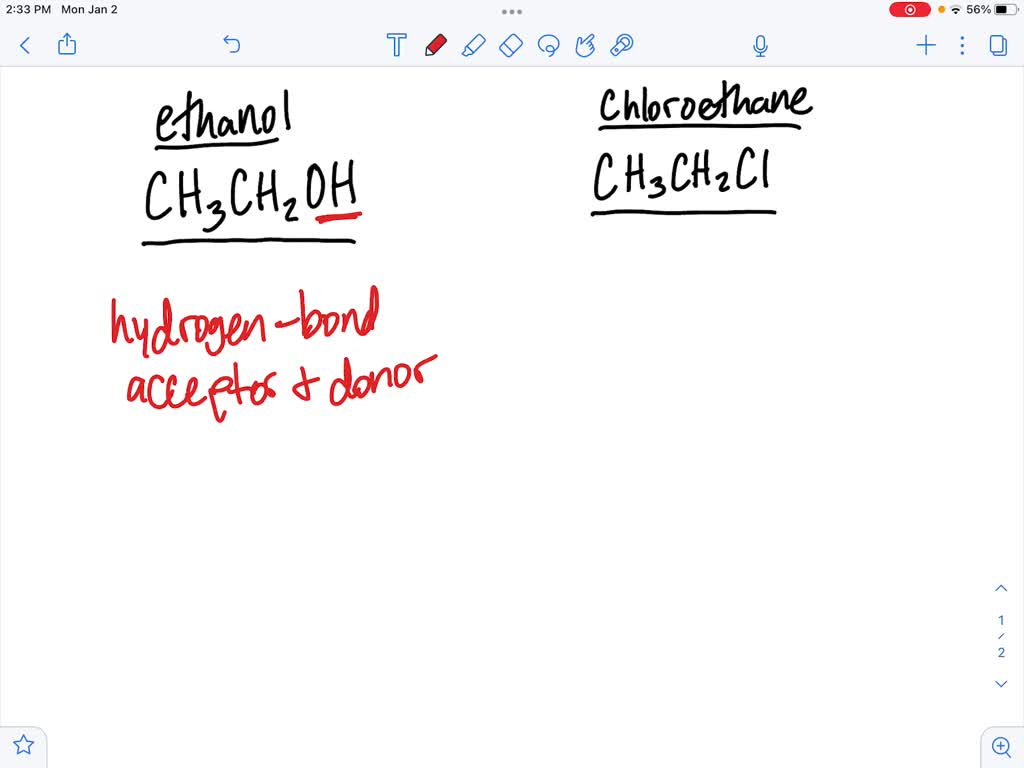 2:33 PM Mon Jan 2
56%
ethanol
CH₃CH₂OH
hydrogen-bond
acceptor + donor
Chloroethane
CH₃CH₂Cl
1
/
2